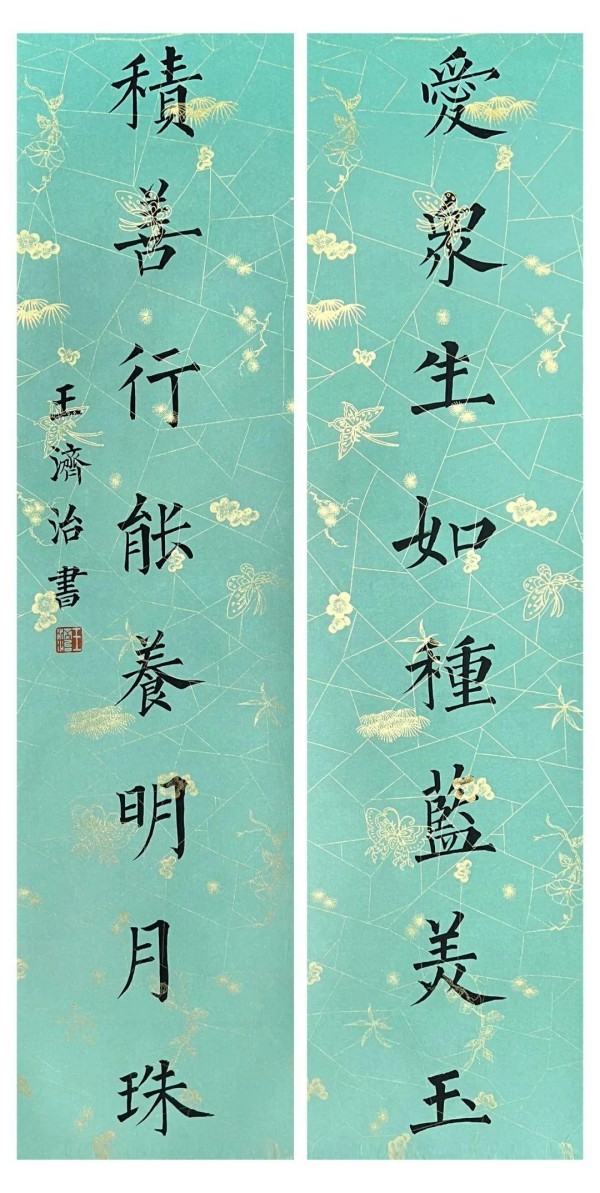 愛眾生如種藍美玉
積善行能養明月珠
王濟治書